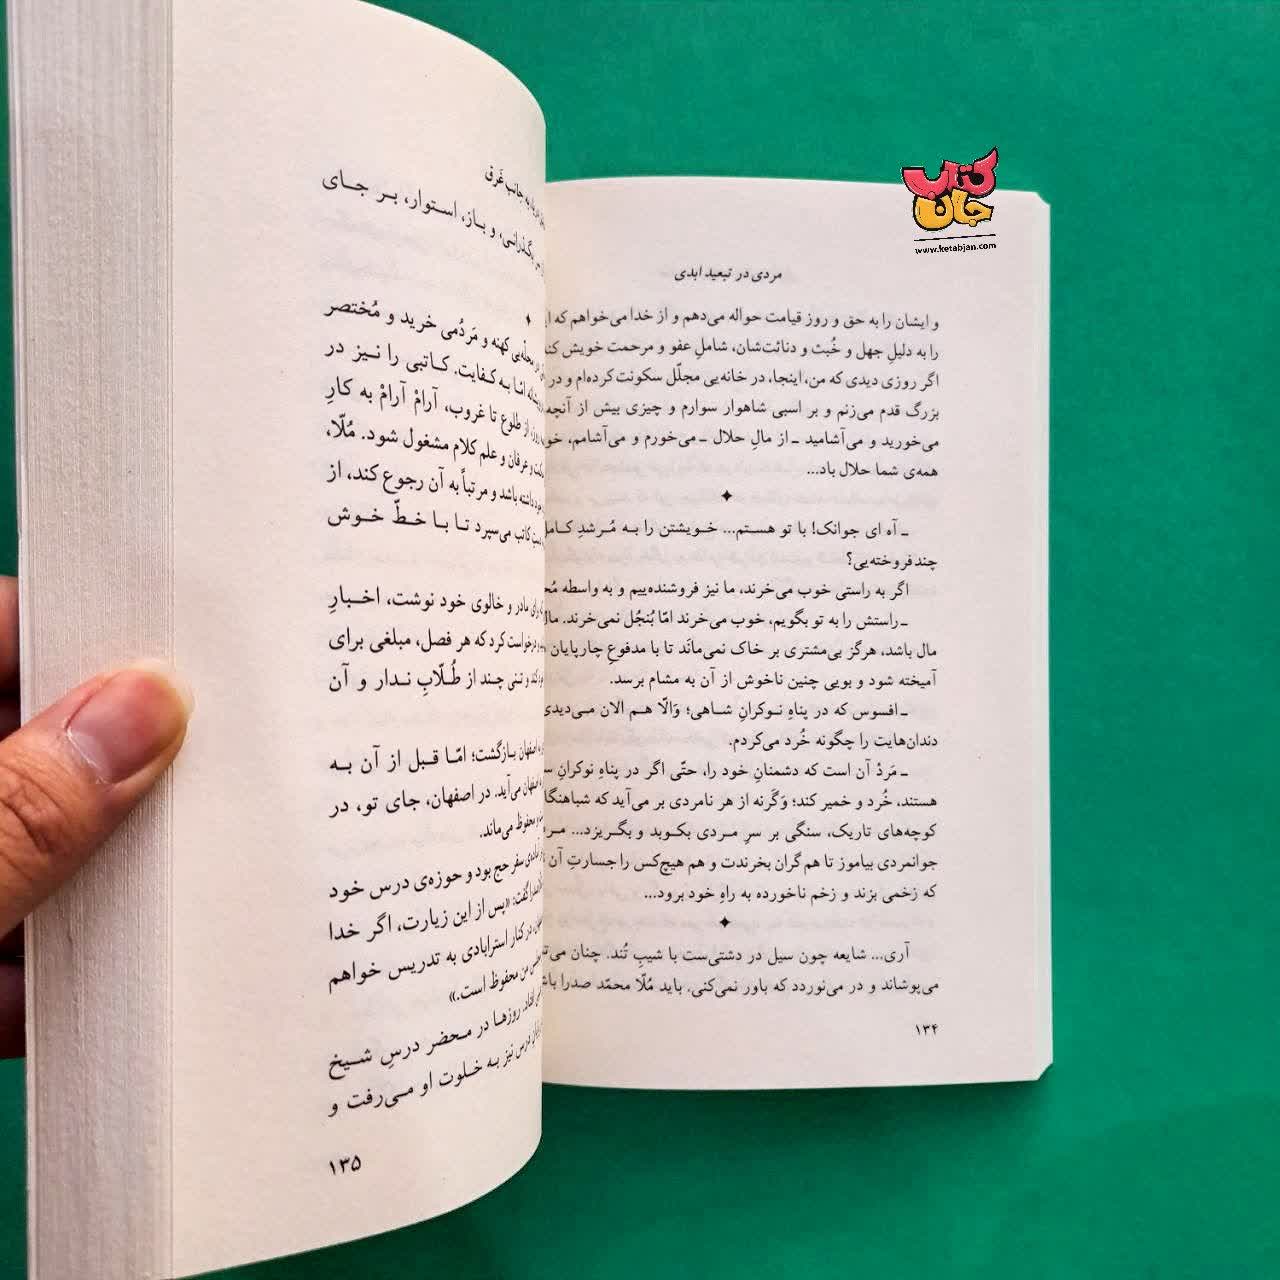 کتاب جان
www.ketabjan.com
مردی در تبعید ابدی
و ایشان را به حق و روز قیامت حواله می‌دهم و از خدا می‌خواهم که
را به دلیلِ جهل و خُبث و دنائت‌شان، شاملِ عفو و مرحمت خویش
اگر روزی دیدی که من، اینجا، در خانه‌یی مجلّل سکونت کرده‌ام و در
بزرگ قدم می‌زنم و بر اسبی شاهوار سوارم و چیزی بیش از آنچه
می‌خورید و می‌آشامید ـ از مالِ حلال ـ می‌خورم و می‌آشامم،
همه‌ی شما حلال باد...
ـ آه ای جوانک! با تو هستم... خویشتن را به مُرشدِ کامل
چند فروخته‌یی؟
اگر به راستی خوب می‌خرند، ما نیز فروشنده‌ییم و به واسطه
ـ راستش را به تو بگویم، خوب می‌خرند امّا بُنجُل نمی‌خرند.
مال باشد، هرگز بی‌مشتری بر خاک نمی‌مانَد تا با مدفوعِ چارپایان
آمیخته شود و بویی چنین ناخوش از آن به مشام برسد.
ـ افسوس که در پناهِ نوکرانِ شاهی؛ وَالّا هم الان می‌دیدی
دندان‌هایت را چگونه خُرد می‌کردم.
ـ مَردْ آن است که دشمنانِ خود را، حتّی اگر در پناهِ نوکرانِ
هستند، خُرد و خمیر کند؛ وَگرنه از هر نامردی بر می‌آید که
کوچه‌های تاریک، سنگی بر سرِ مردی بکوبد و بگریزد...
جوانمردی بیاموز تا هم گران بخرندت و هم هیچ‌کس را جسارتِ آن
که زخمی بزند و زخم ناخورده به راهِ خود برود...
آری... شایعه چون سیل در دشتی‌ست با شیبِ تُند. چنان
می‌پوشاند و در می‌نوردد که باور نمی‌کنی. باید مُلّا محمّد صدرا
۱۳۴
به جانب غَرق
و باز، استوار، بر جای
محلّه‌یی کهنه و مَردُمی خرید و مُختصر
امّا به کفایت. کاتبی را نیز در
از طلوع تا غروب، آرامْ آرامْ به کارِ
و عرفان و علم کلام مشغول شود. مُلّا،
داشته باشد و مرتباً به آن رجوع کند، از
کاتب می‌سپرد تا با خطّ خوش
مادر و خالوی خود نوشت، اخبارِ
درخواست کرد که هر فصل، مبلغی برای
و تنی چند از طُلّابِ ندار و آن
اصفهان بازگشت؛ امّا قبل از آن به
اصفهان می‌آید. در اصفهان، جای تو، در
محفوظ می‌ماند.
سفر حج بود و حوزه‌ی درس خود
گفت: «پس از این زیارت، اگر خدا
در کنار استرابادی به تدریس خواهم
من محفوظ است.»
روزها در محضر درسِ شیخ
درس نیز به خلوت او می‌رفت و
۱۳۵